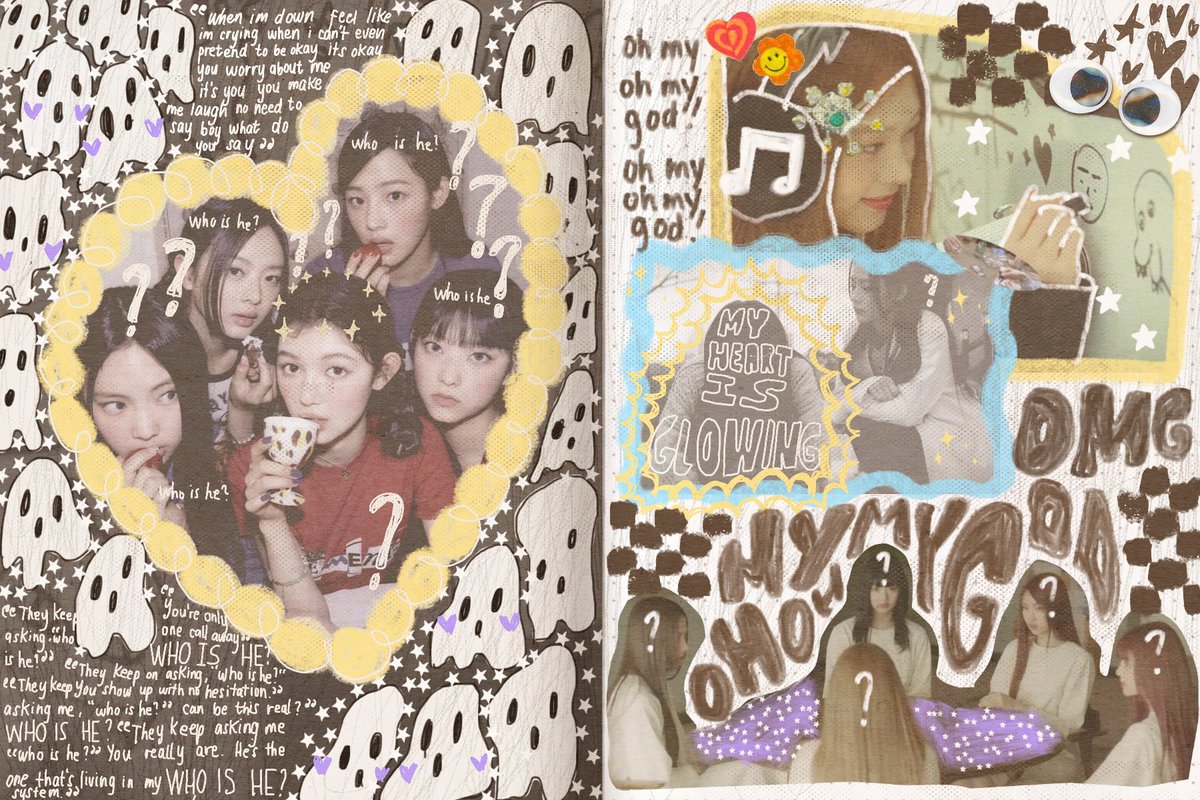 “When im down feel like
im crying when i can't even
pretend to be okay its okay
you worry about me
it's you you make
me laugh no need to
say boy what do
you say”
Who is he?
?
Who is he?
? ?
Who is he?
?
Who is he?
?
“They keep
asking “who
is he?”
“You're only
one call away”
WHO IS HE?
“They keep on asking, “who is he?”
“They keep You show up with no hesitation.”
asking me, “who is he?” can be this real?”
WHO IS HE? “They keep asking me
“who is he?” You really are. He's the
one that's living in my WHO IS HE?
system.”
oh my
oh my
god!
oh my
oh my
god!
MY
HEART
IS
GLOWING
?
OMG
OH OH MY MY GOD
? ? ? ? ?